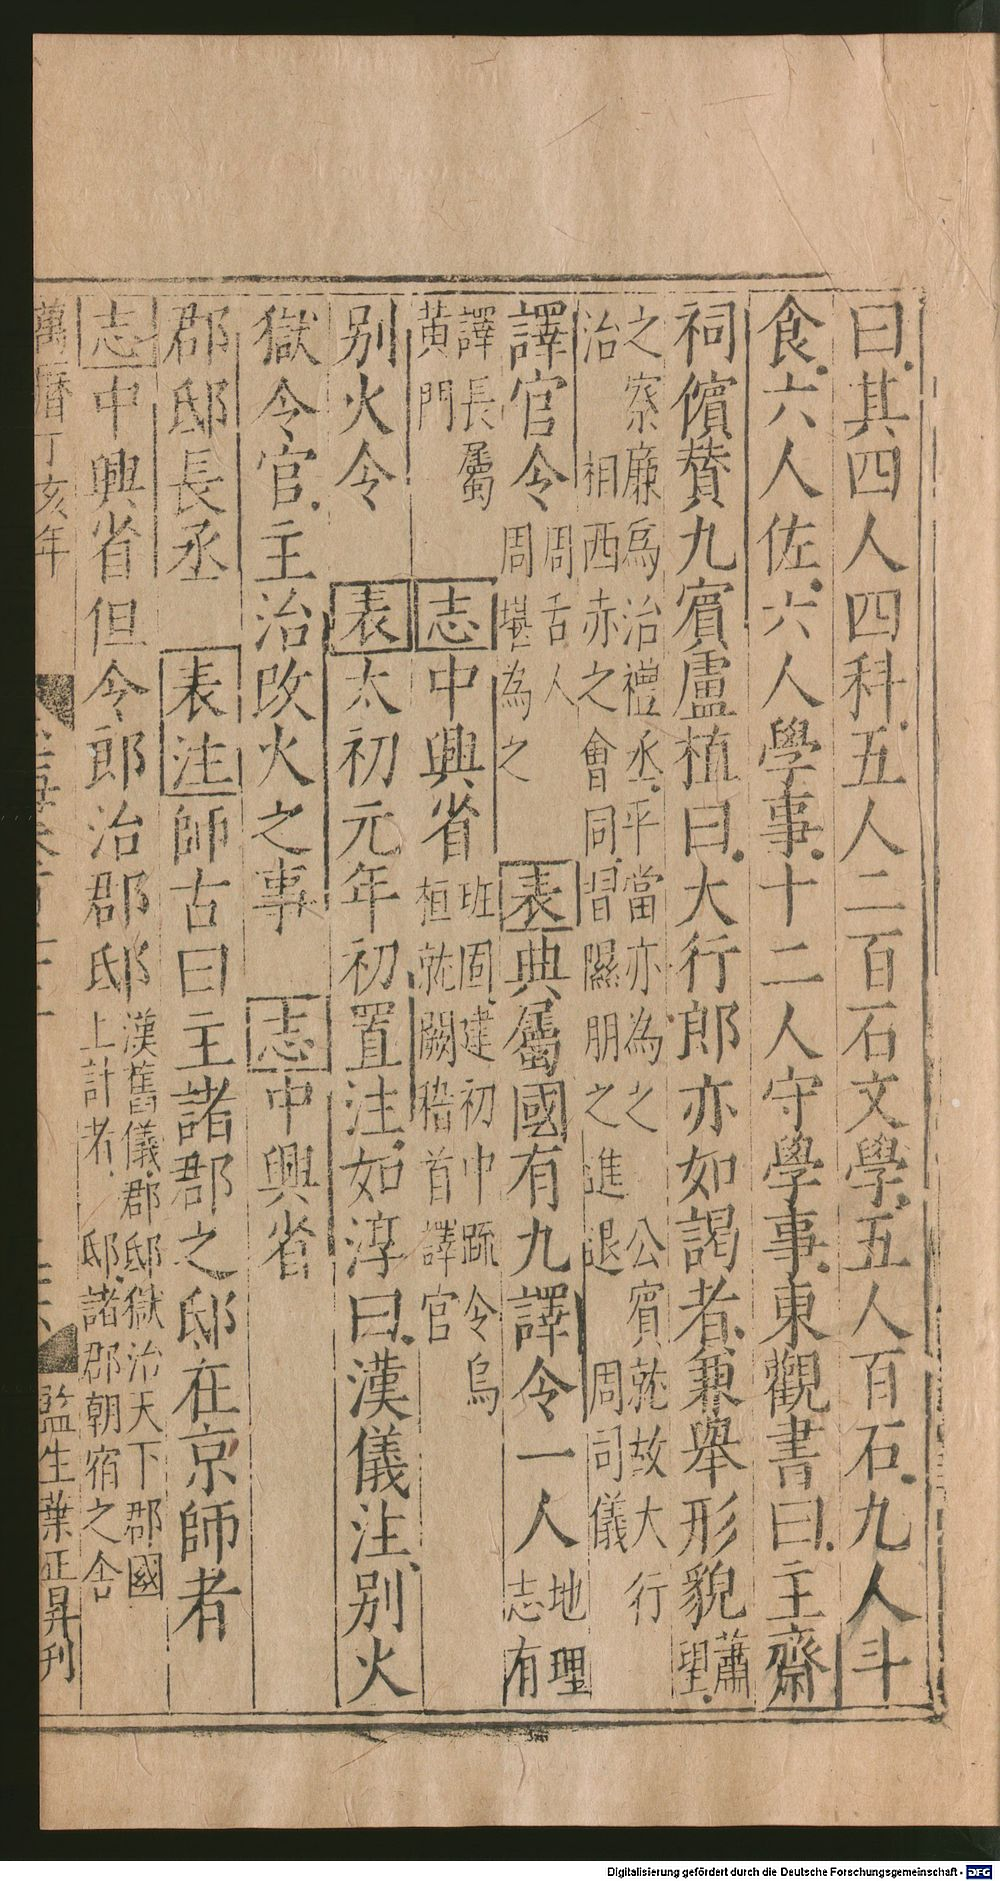 曰其四人四科五人二百石文學五人百石九人斗
食六人佐六人學事十二人守學事東觀書曰主齋
祠儐贊九賓盧植曰大行郎亦如謁者兼舉形貌蕭望
之察廉爲治禮丞平當亦為之 公賓就故大行
治 相西赤之會同習隰朋之進退 周司儀
譯官令 周舌人
周堪為之
表典屬國有九譯令一人 地理
志有
譯長屬
黃門
志中興省 班固建初中疏令烏
桓就闕稽首譯官
別火令
表太初元年初置注如淳曰漢儀注別火
獄令官主治改火之事
志中興省
郡邸長丞
表注師古曰主諸郡之邸在京師者
志中興省但令郎治郡邸 漢舊儀郡邸獄治天下郡國
上計者邸諸郡朝宿之舍
萬曆丁亥年
監生葉正昇刊
Digitalisierung gefördert durch die Deutsche Forschungsgemeinschaft - DFG